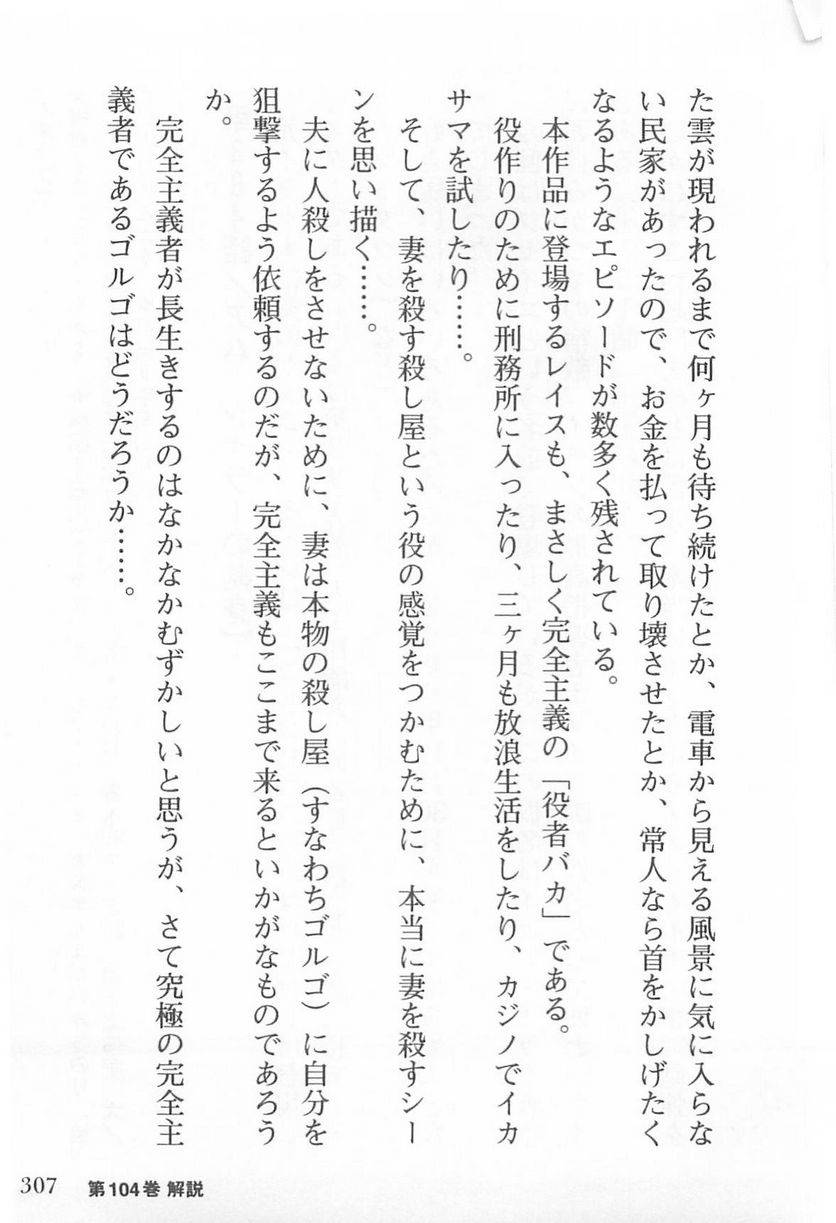 た雲が現われるまで何ヶ月も待ち続けたとか、電車から見える風景に気に入らな
い民家があったので、お金を払って取り壊させたとか、常人なら首をかしげたく
なるようなエピソードが数多く残されている。
本作品に登場するレイスも、まさしく完全主義の「役者バカ」である。
役作りのために刑務所に入ったり、三ヶ月も放浪生活をしたり、カジノでイカ
サマを試したり……。
そして、妻を殺す殺し屋という役の感覚をつかむために、本当に妻を殺すシー
ンを思い描く……。
夫に人殺しをさせないために、妻は本物の殺し屋（すなわちゴルゴ）に自分を
狙撃するよう依頼するのだが、完全主義もここまで来るといかがなものであろう
か。
完全主義者が長生きするのはなかなかむずかしいと思うが、さて究極の完全主
義者であるゴルゴはどうだろうか……。
307 第104巻 解説